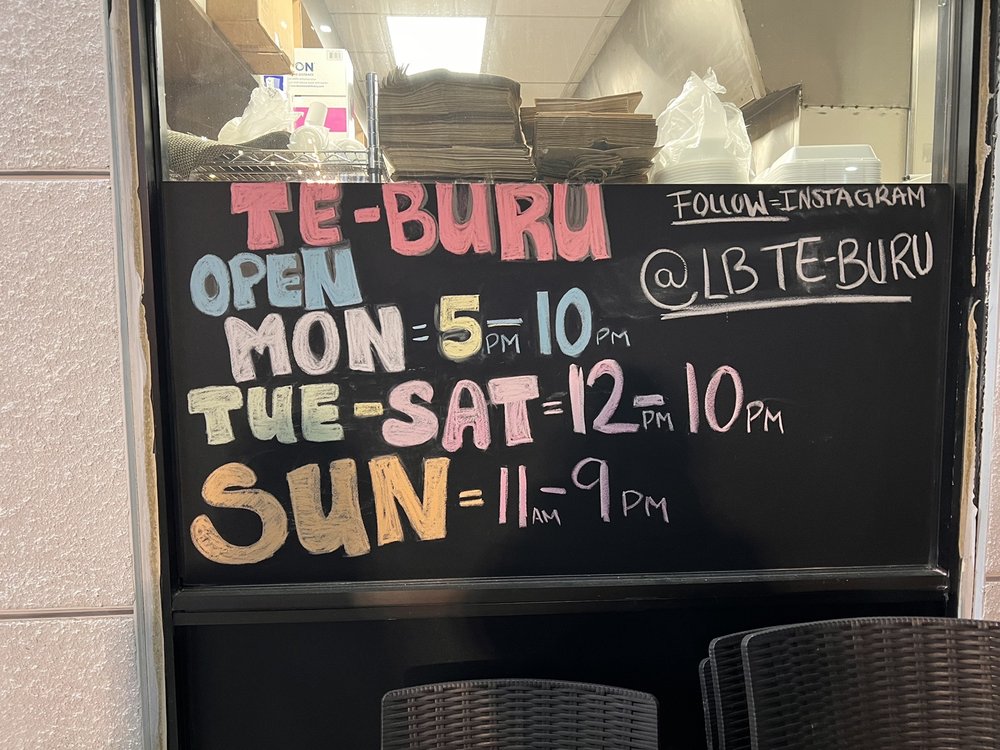 TE-BURU
OPEN
MON = 5PM - 10PM
TUE-SAT = 12PM - 10PM
SUN = 11AM - 9PM
FOLLOW = INSTAGRAM
@LB TE-BURU
ON